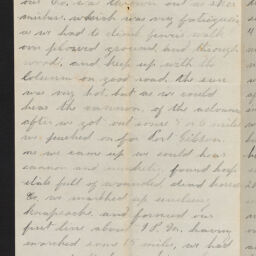 our Co. was thrown out as skir
mishers, which was very fatiguing
as we had to climb fences walk
over plowed ground, and through
woods, and keep up with the
column on good road. the sun
was very hot, but as we could
hear the cannon, of the advance
after we got out some 5 or 6 miles
we pushed on for Port Gibson.
as we came up we could hear
cannon and musketry, found hosp
itals full of wounded, dead horses
&c, we marched up
knapsacks, and formed our
first line about 1 P. M. having
marched some 15 miles, we had